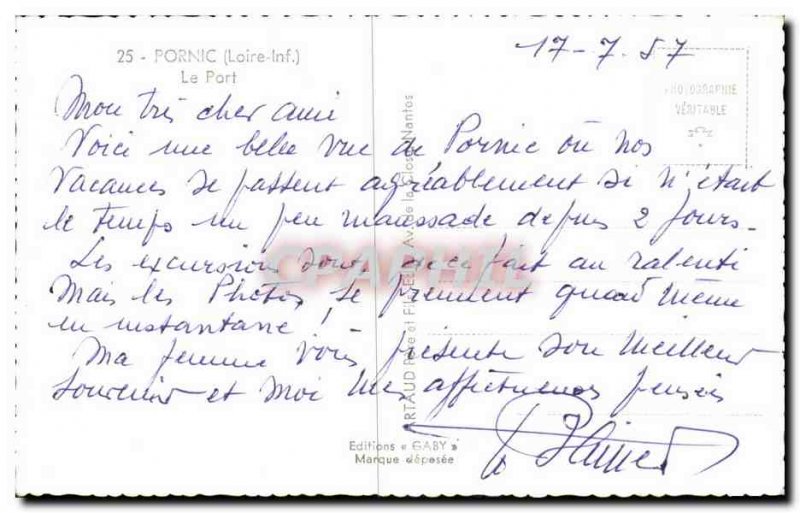 25 - PORNIC (Loire-Inf.)
Le Port
17-7.57
PHOTOGRAPHIE
VÉRITABLE
Mon très cher ami
Voici une belle vue de Pornic où nos
Vacances se passent agréablement si n'était
le temps un peu maussade depuis 2 jours-
Les excursions sont de ce fait au ralenti
Mais les Photos se prennent quand même
en instantané !
Ma femme vous présente son meilleur
souvenir et moi mes affectueuses pensées
CPAPHIL
Editions « GABY »
Marque déposée
ARTAUD Père et Fils, Edit. Av. de la Close, Nantes